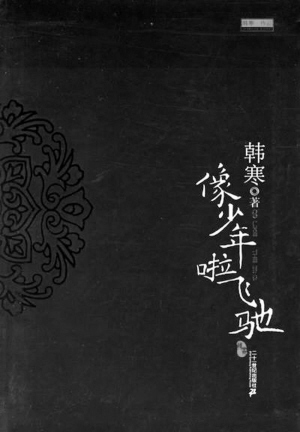 韩寒 著
像少年啦飞驰
二十一世纪出版社